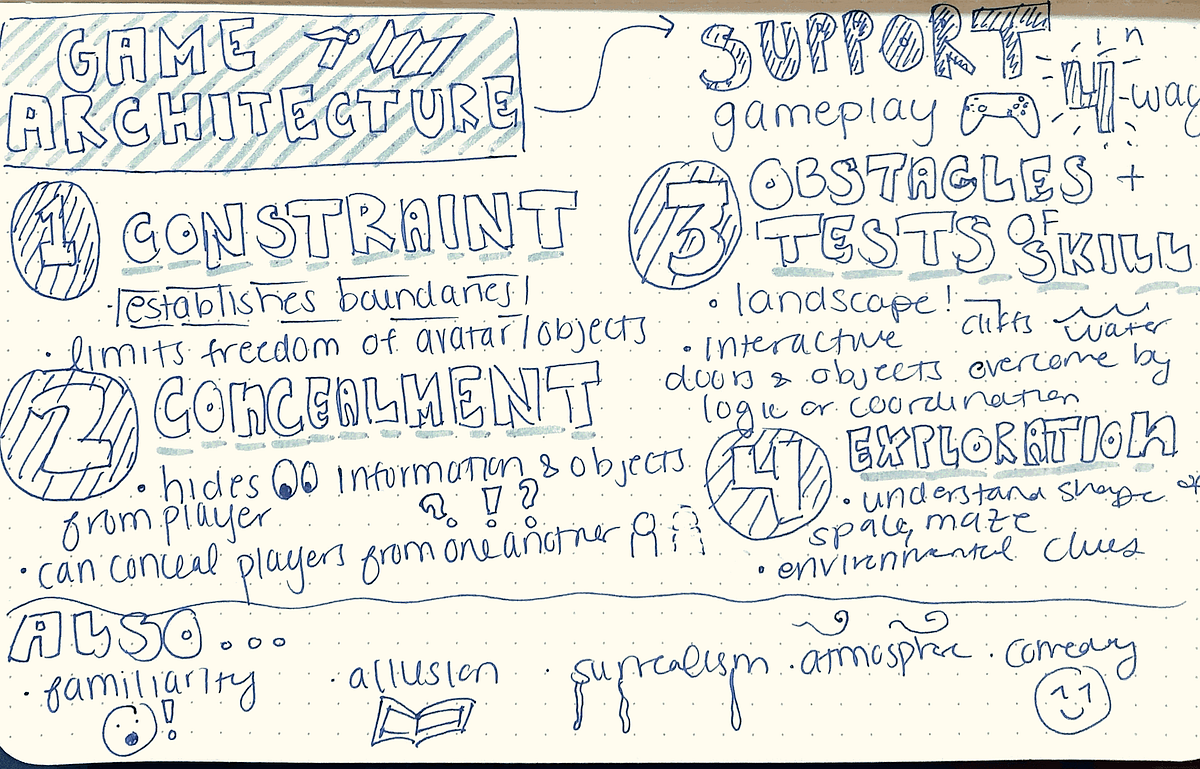 GAME
ARCHITECTURE
SUPPORT in
gameplay 4-way
1 CONSTRAINT
establishes boundaries!
• limits freedom of avatar/objects
2 CONCEALMENT
• hides information & objects
from player
? ! ?
• can conceal players from one another
3 OBSTACLES +
TESTS OF
SKILL
• landscape! cliffs water
• interactive
doors & objects overcome by
logic or coordination
4 EXPLORATION
• understand shape of
space, maze
• environmental clues
ALSO...
• familiarity
!
• allusion
• surrealism
• atmosphere
• comedy